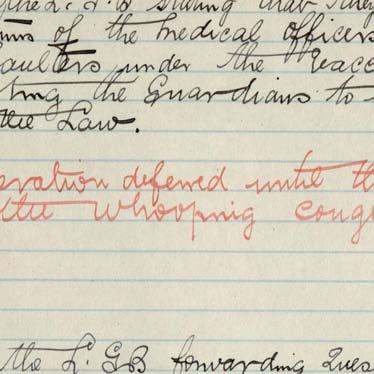 the L. G. B stating that they
of the Medical officers
aulters under the Vacc
ting the Guardians to
the Law.
eration deferred until th
the Whooping coug
the L. GB forwarding Ques